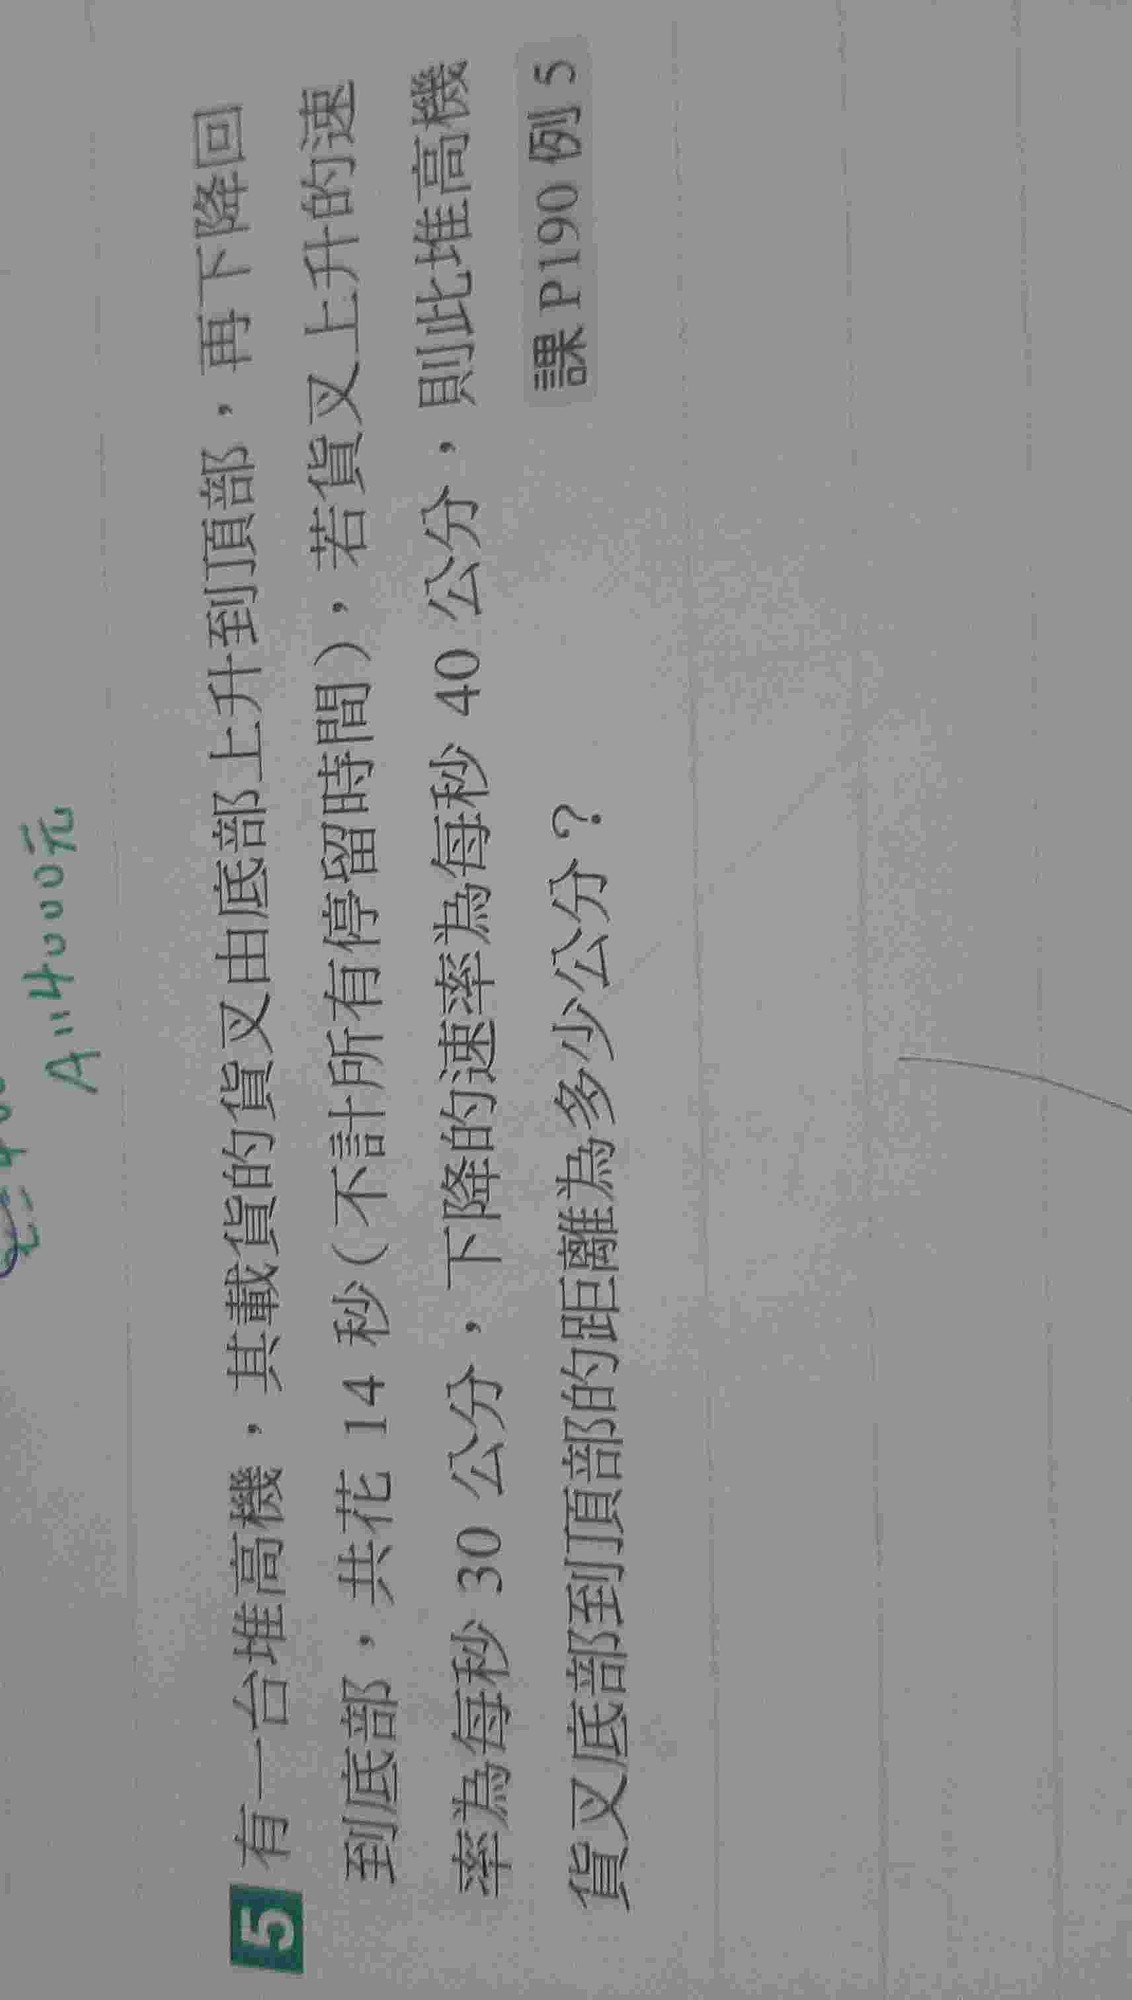 A:4000元
5 有一台堆高機，其載貨的貨叉由底部上升到頂部，再下降回
到底部，共花 14 秒（不計所有停留時間），若貨叉上升的速
率為每秒 30 公分，下降的速率為每秒 40 公分，則此堆高機
貨叉底部到頂部的距離為多少公分？
課 P190 例 5